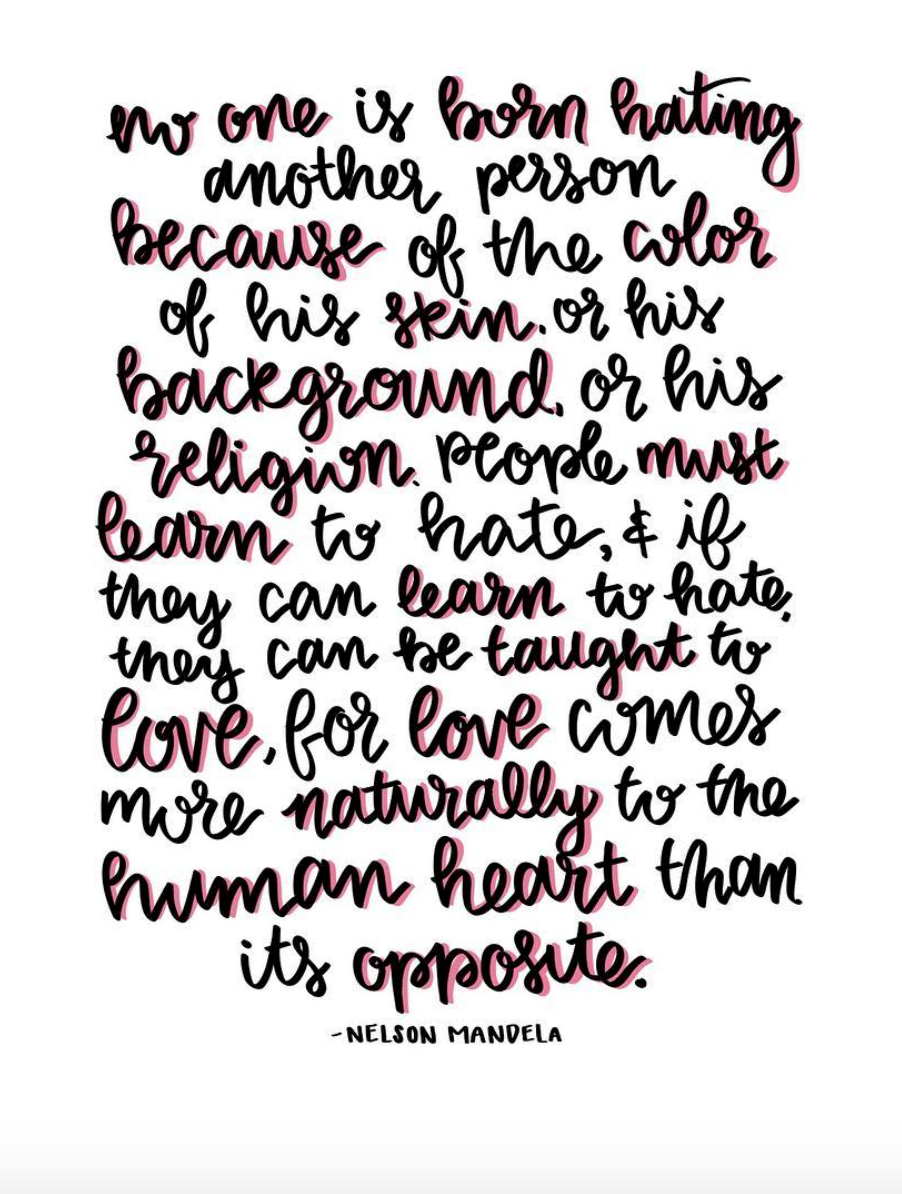 no one is born hating
another person
because of the color
of his skin, or his
background, or his
religion. people must
learn to hate, & if
they can learn to hate,
they can be taught to
love, for love comes
more naturally to the
human heart than
its opposite.
-NELSON MANDELA